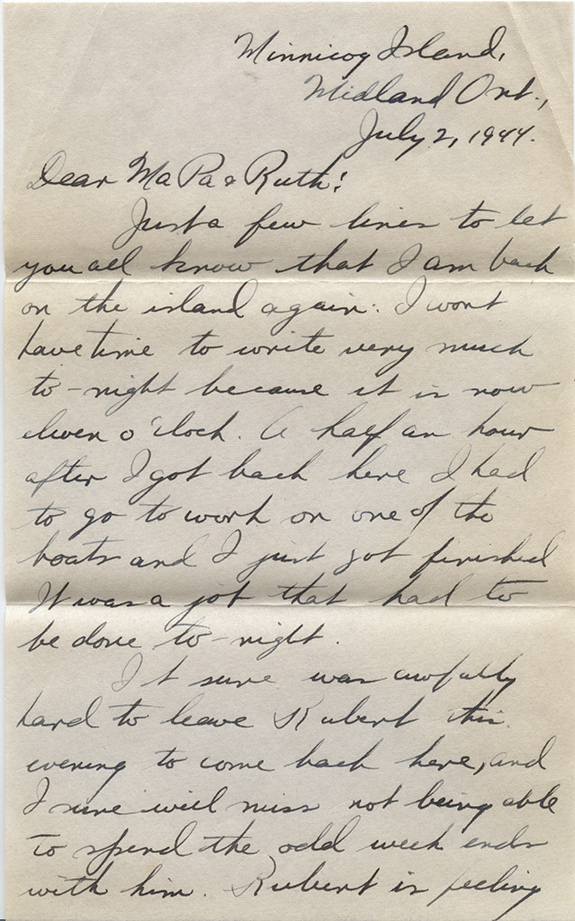 Minnicog Island,
Midland Ont.,
July 2, 1944.
Dear Ma Pa & Ruth:
Just a few lines to let
you all know that I am back
on the island again. I wont
have time to write very much
to-night because it is now
eleven o'clock. A half an hour
after I got back here I had
to go to work on one of the
boats and I just got finished
It was a job that had to
be done to-night.
It sure was awfully
hard to leave Rubert this
evening to come back here, and
I sure will miss not being able
to spend the odd week ends
with him. Rubert is feeling